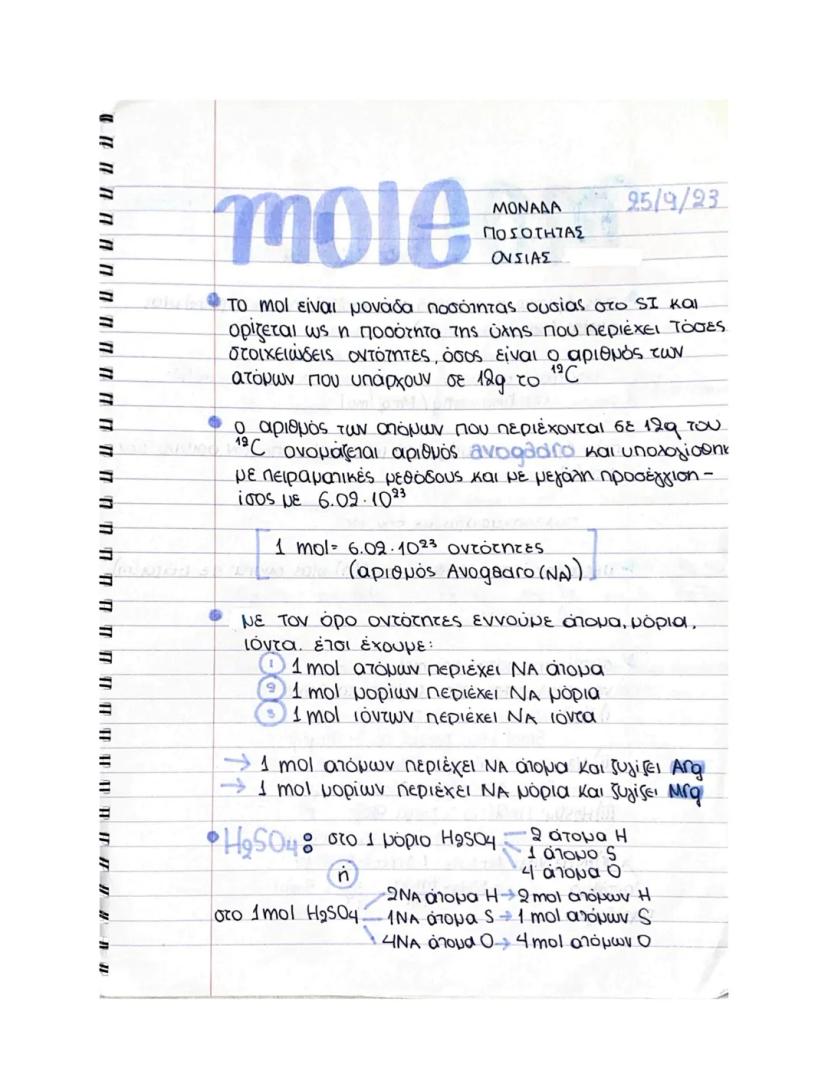 mole
ΜΟΝΑΔΑ
ΠΟΣΟΤΗΤΑΣ
ΟΥΣΙΑΣ
25/9/23
Το mol είναι μονάδα ποσότητας ουσίας στο SI και
ορίζεται ως η ποσότητα της ύλης που περιέχει τόσες
στοιχειώδεις οντότητες, όσος είναι ο αριθμός των
ατόμων που υπάρχουν σε 12g το ¹²C
Ο αριθμός των ατόμων που περιέχονται σε 12g του
¹²C ονομάζεται αριθμός avogadro και υπολογίσθηκ
με πειραματικές μεθόδους και με μεγάλη προσέγγιση -
ίσος με 6.02·10²³
1 mol= 6.02·10²³ οντότητες
(αριθμός Avogadro (NA))
Με τον όρο οντότητες εννούμε άτομα, μόρια,
ιόντα. έτσι έχουμε:
① 1 mol ατόμων περιέχει NA άτομα
② 1 mol μορίων περιέχει NA μόρια
③ 1 mol ιόντων περιέχει NA ιόντα
→ 1 mol ατόμων περιέχει NA άτομα και ζυγίζει Arg
→ 1 mol μορίων περιέχει NA μόρια και ζυγίζει Mrg
H₂SO₄: στο 1 μόριο H₂SO₄ 2 άτομα H
1 άτομο S
4 άτομα O
ή
2NA άτομα H → 2 mol ατόμων H
στο 1mol H₂SO₄ 1NA άτομα S → 1 mol ατόμων S
4NA άτομα O → 4 mol ατόμων O